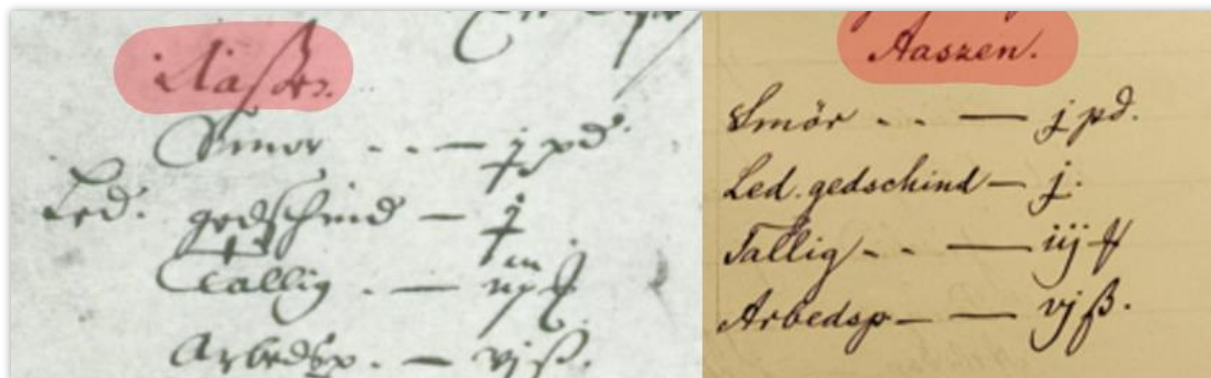 Aaszen.
Smor . . — j pd.
Led. gedschind — j
Tallig . — iij ℔
Arbedsp. — vj ß.
Aaszen.
Smör . . — j pd.
Led. gedschind — j.
Tallig . . — iij ℔
Arbedsp — — vj ß.